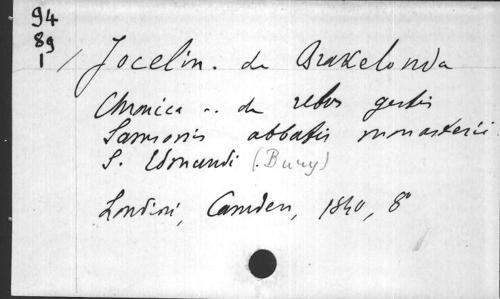 94
89
1
Jocelin. de Brakelonda
Chronica .. de rebus gestis
Samsonis abbatis monasterii
S. Edmundi (Bury)
Londini, Camden, 1840, 8°